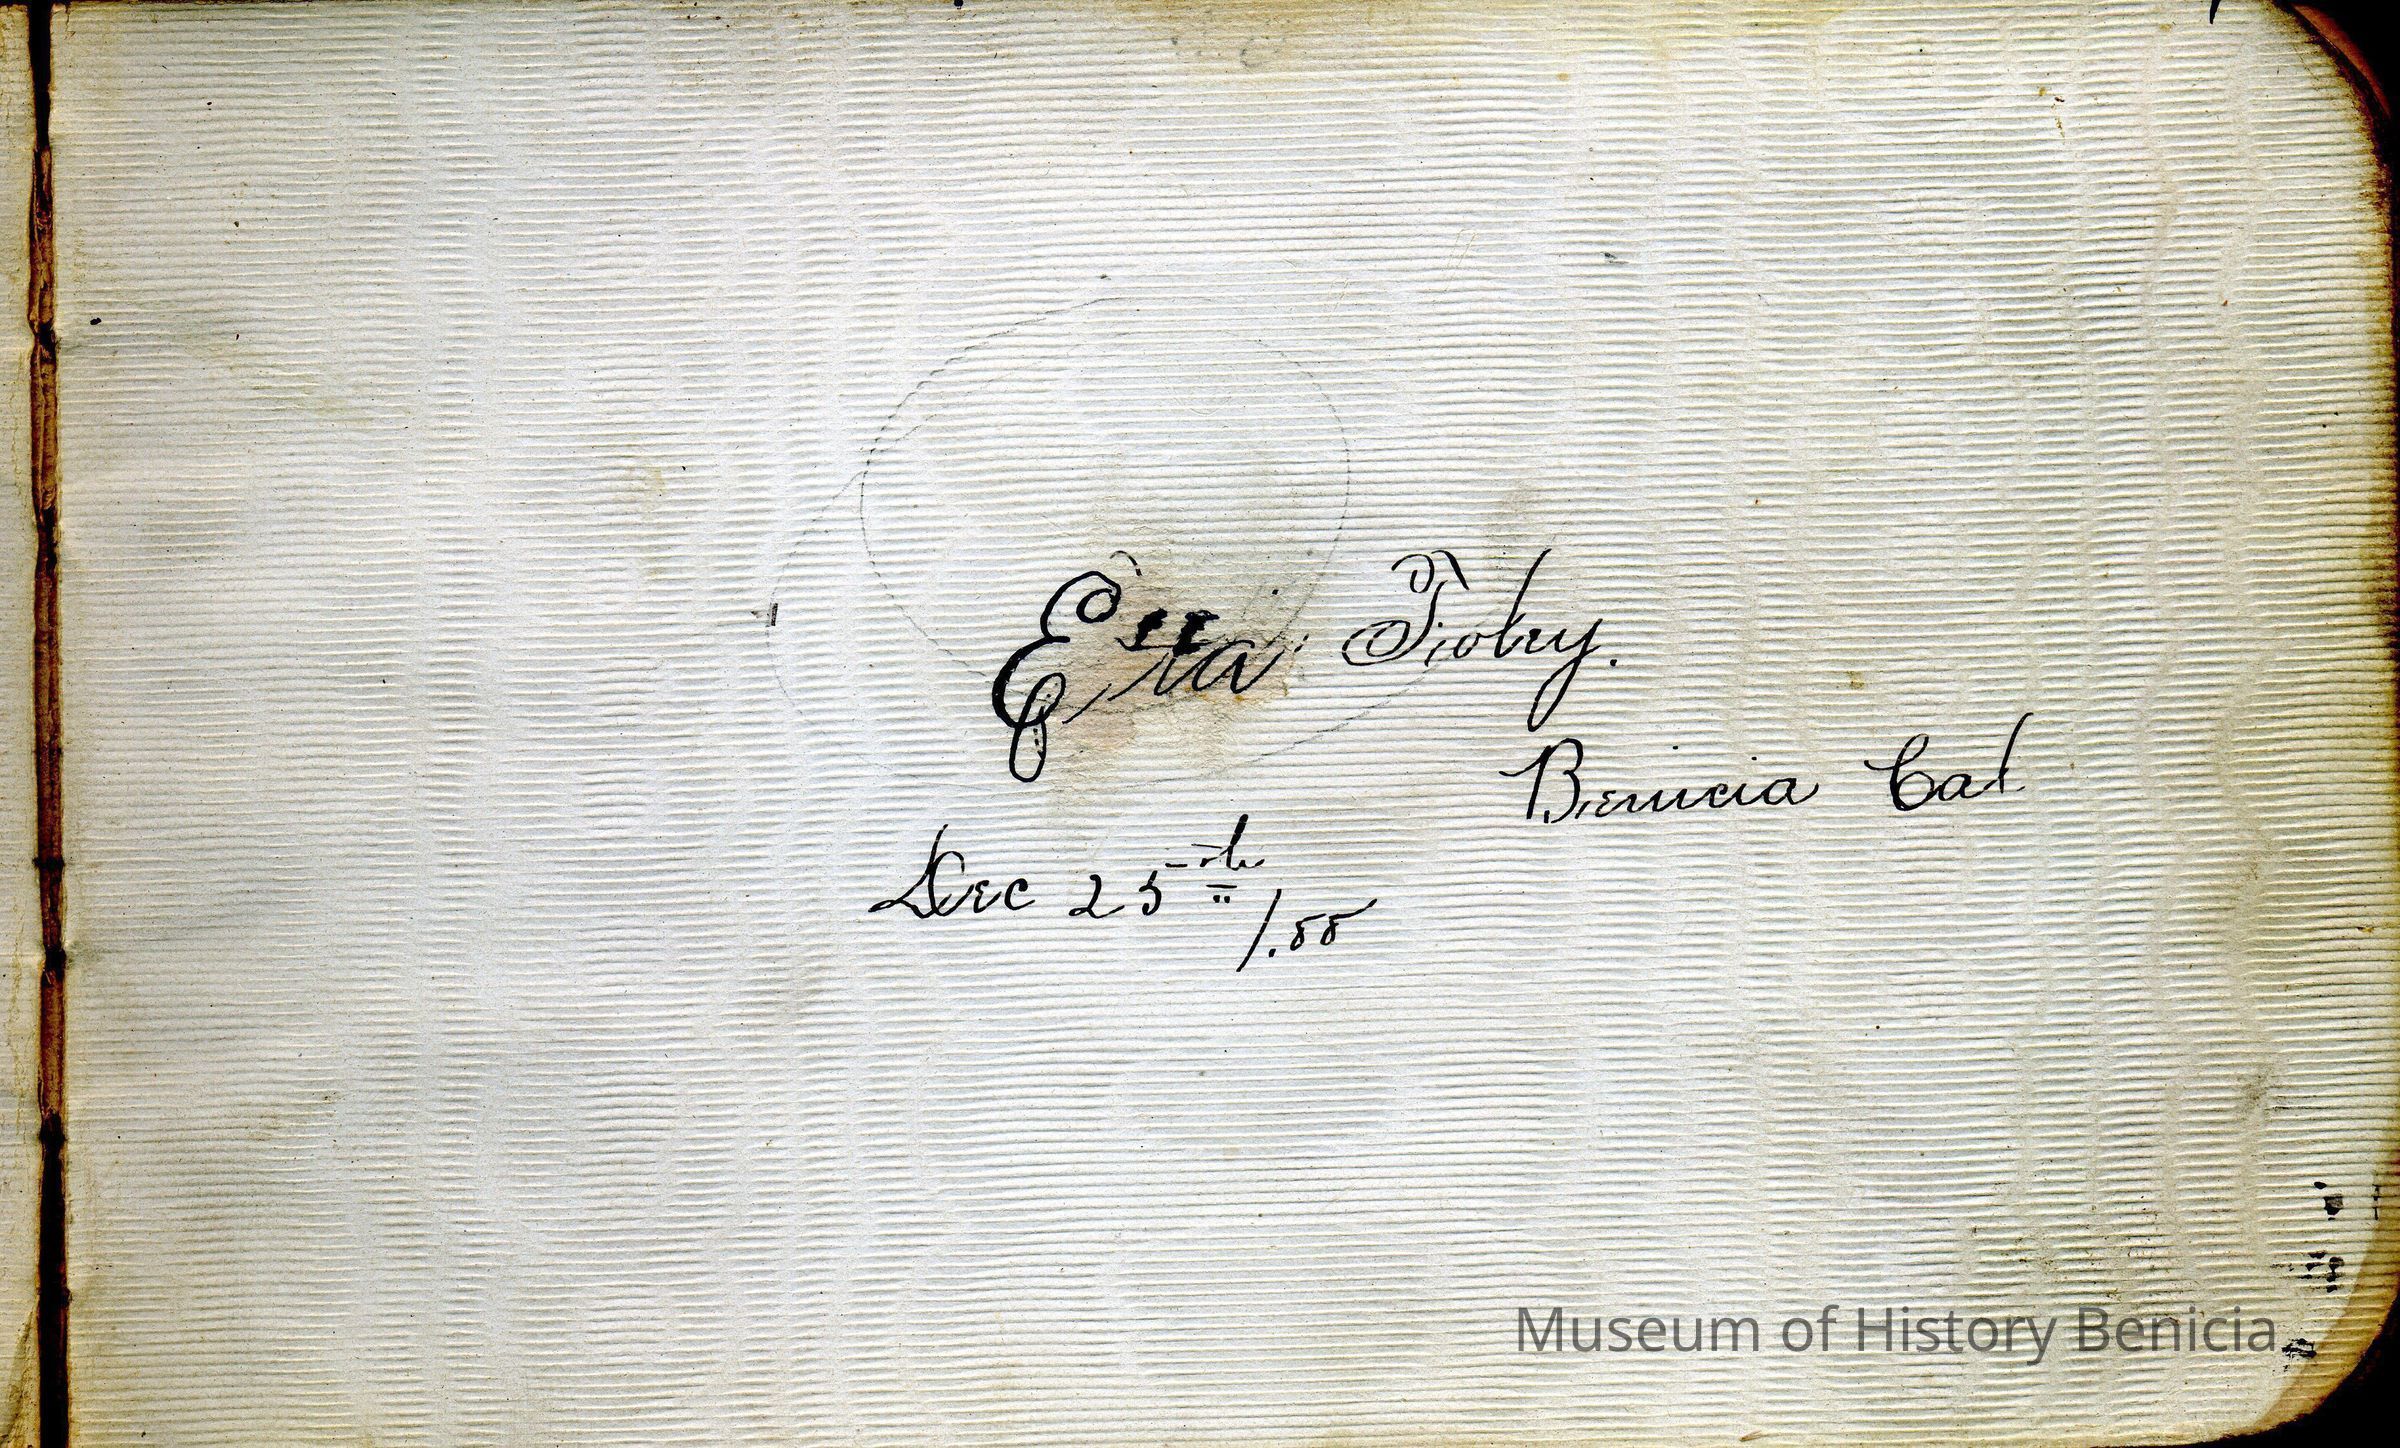 Etta Tobey.
Benicia Cal
Dec 25th
/.88
Museum of History Benicia